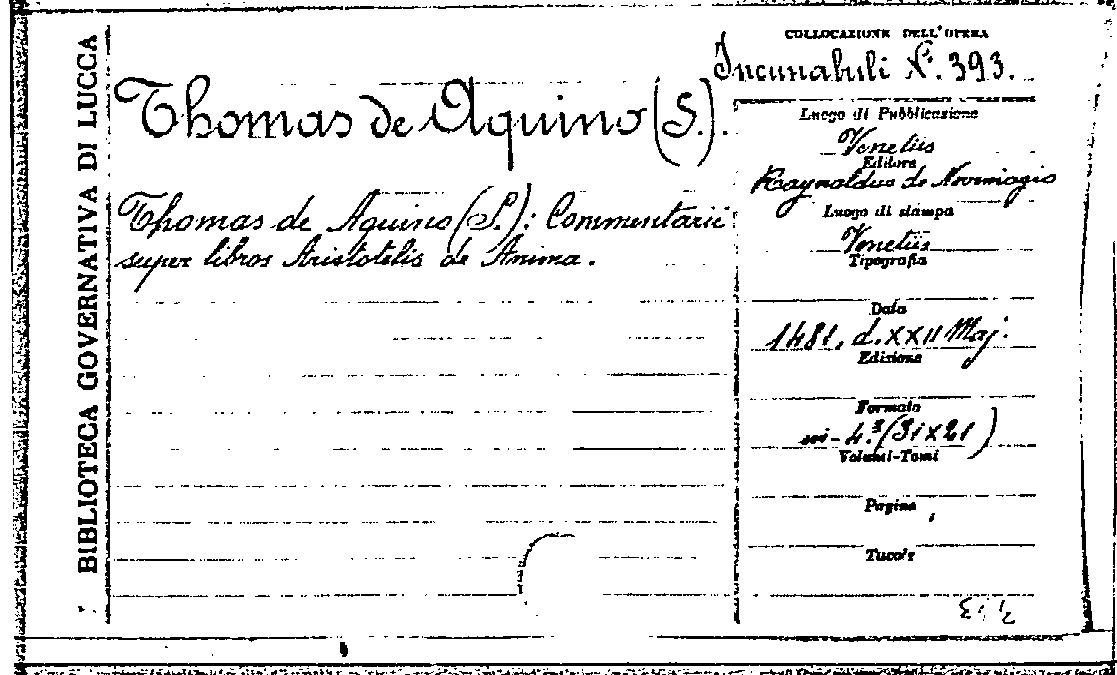 BIBLIOTECA GOVERNATIVA DI LUCCA
Thomas de Aquino (S.).
Thomas de Aquino (S.): Commentarii
super libros Aristotelis de Anima.
COLLOCAZIONE DELL'OPERA
Incunabuli N. 393.
Luogo di Pubblicazione
Venetiis
Editore
Raynaldus de Novimagio
Luogo di stampa
Venetiis
Tipografia
Data
1481, d. XXII Maj.
Edizione
Formato
in-4.° (31x21)
Volumi-Tomi
Pagine